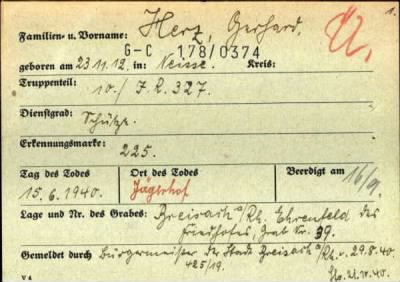 1.
Familien- u. Vorname: Herz, Gerhard.
G-C 178/0374
geboren am 23.11.12. in: Neisse. Kreis:
Truppenteil: 10./ J.R. 327.
Dienstgrad: Schütze.
Erkennungsmarke: 225.
Tag des Todes Ort des Todes Beerdigt am 16/9.
15.6.1940. Jägerhof
Lage und Nr. des Grabes: Breisach a/Rh. Ehrenfeld des
Friedhofes, Grab Nr. 39.
Gemeldet durch Bürgermeister der Stadt Breisach a/Rh. v. 29.8.40
425/19.
V 4